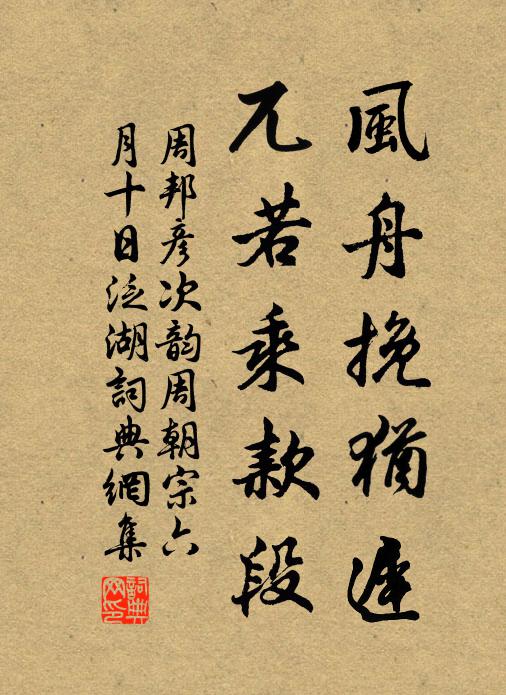 風舟挽猶遲
兀若乘款段
周邦彥次韵周朝宗六
月十日泛湖詞典網集
詞典
网印